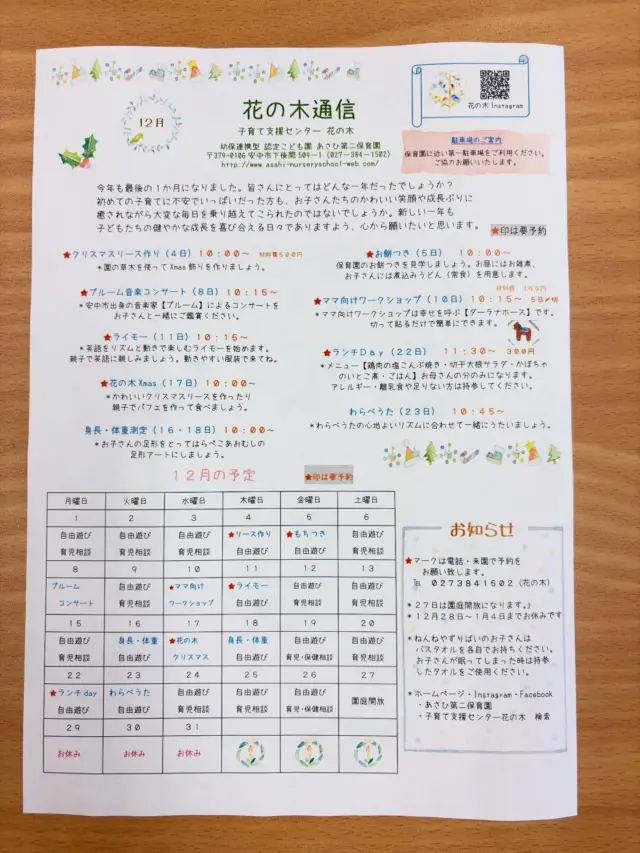 12月
花の木通信
子育て支援センター 花の木
幼保連携型 認定こども園 あさひ第二保育園
〒379-0106 安中市下後閑509-1(027-384-1502)
http://www.asahi-nurseryschool-web.com/
花の木 Instagram
駐車場のご案内
保育園に近い第一駐車場をご利用ください。
ご協力お願いします。
今年も最後の1か月になりました。皆さんにとってはどんな一年だったでしょうか?
初めての子育てに不安でいっぱいだった方も、お子さんたちのかわいい笑顔や成長ぶりに
癒されながら大変な毎日を乗り越えてこられたのではないでしょうか。新しい一年も
子どもたちの健やかな成長を喜び合える日々でありますよう、心から願いたいと思います。
★印は要予約
★クリスマスリース作り(4日)10:00~ 材料費500円
*園の草木を使ってXmas飾りを作りましょう。
★ブルーム音楽コンサート(8日)10:15~
*安中市出身の音楽家【ブルーム】によるコンサートを
お子さんと一緒にご鑑賞ください。
★ライモー(11日)10:15~
*英語をリズムと動きで楽しむライモーを始めます。
親子で英語に親しみましょう。動きやすい服装で来てね。
★花の木Xmas(17日)10:00~
*かわいいクリスマスリースを作ったり
親子でパフェを作って食べましょう。
身長・体重測定(16・18日)10:00~
*お子さんの足形をとってはらぺこあおむしの
足形アートにしましょう。
★お餅つき(5日)10:00~
保育園のお餅つきを見学しましょう。お昼にはお雑煮、
お子さんには煮込みうどん(常食)を用意します。
★ママ向けワークショップ(10日)10:15~
*ママ向けワークショップは幸せを呼ぶ【ダーラナホース】です。
切って貼るだけで簡単にできます。
★ランチDay(22日)11:30~ 300円
*メニュー【鶏肉の塩こんぶ焼き・切干大根サラダ・かぼちゃ
のいとこ煮・ごはん】お母さんの分のみになります。
アレルギー・離乳食や足りない方は持参してください。
わらべうた(23日)10:45~
*わらべうたの心地よいリズムに合わせて一緒にうたいましょう。
12月の予定
★印は要予約
月曜日 火曜日 水曜日 木曜日 金曜日 土曜日
1 2 3 4 5 6
自由遊び 自由遊び 自由遊び ★リース作り ★もちつき 自由遊び
育児相談 育児相談 育児相談 自由遊び 自由遊び 育児相談
8 9 10 11 12 13
ブルーム 自由遊び ★ママ向け ★ライモー 自由遊び 自由遊び
コンサート 育児相談 ワークショップ 自由遊び 育児相談 育児相談
15 16 17 18 19 20
自由遊び 身長・体重 ★花の木 身長・体重 自由遊び 自由遊び
育児相談 自由遊び クリスマス 自由遊び 育児・保健相談 育児相談
22 23 24 25 26 27
★ランチday わらべうた 自由遊び 自由遊び 自由遊び 園庭開放
自由遊び 自由遊び 育児相談 育児相談 育児・保健相談
29 30 31
お休み お休み お休み
お知らせ
★マークは電話・来園で予約を
お願い致します。
℡ 0273841502(花の木)
*27日は園庭開放になります。♪
*12月28日~1月4日までお休みです
*ねんねやずりばいのお子さんは
バスタオルを各自でお持ちください。
お子さんが眠ってしまった時は持参
したタオルをご使用ください。
*ホームページ・Instagram・Facebook
・あさひ第二保育園
・子育て支援センター花の木 検索